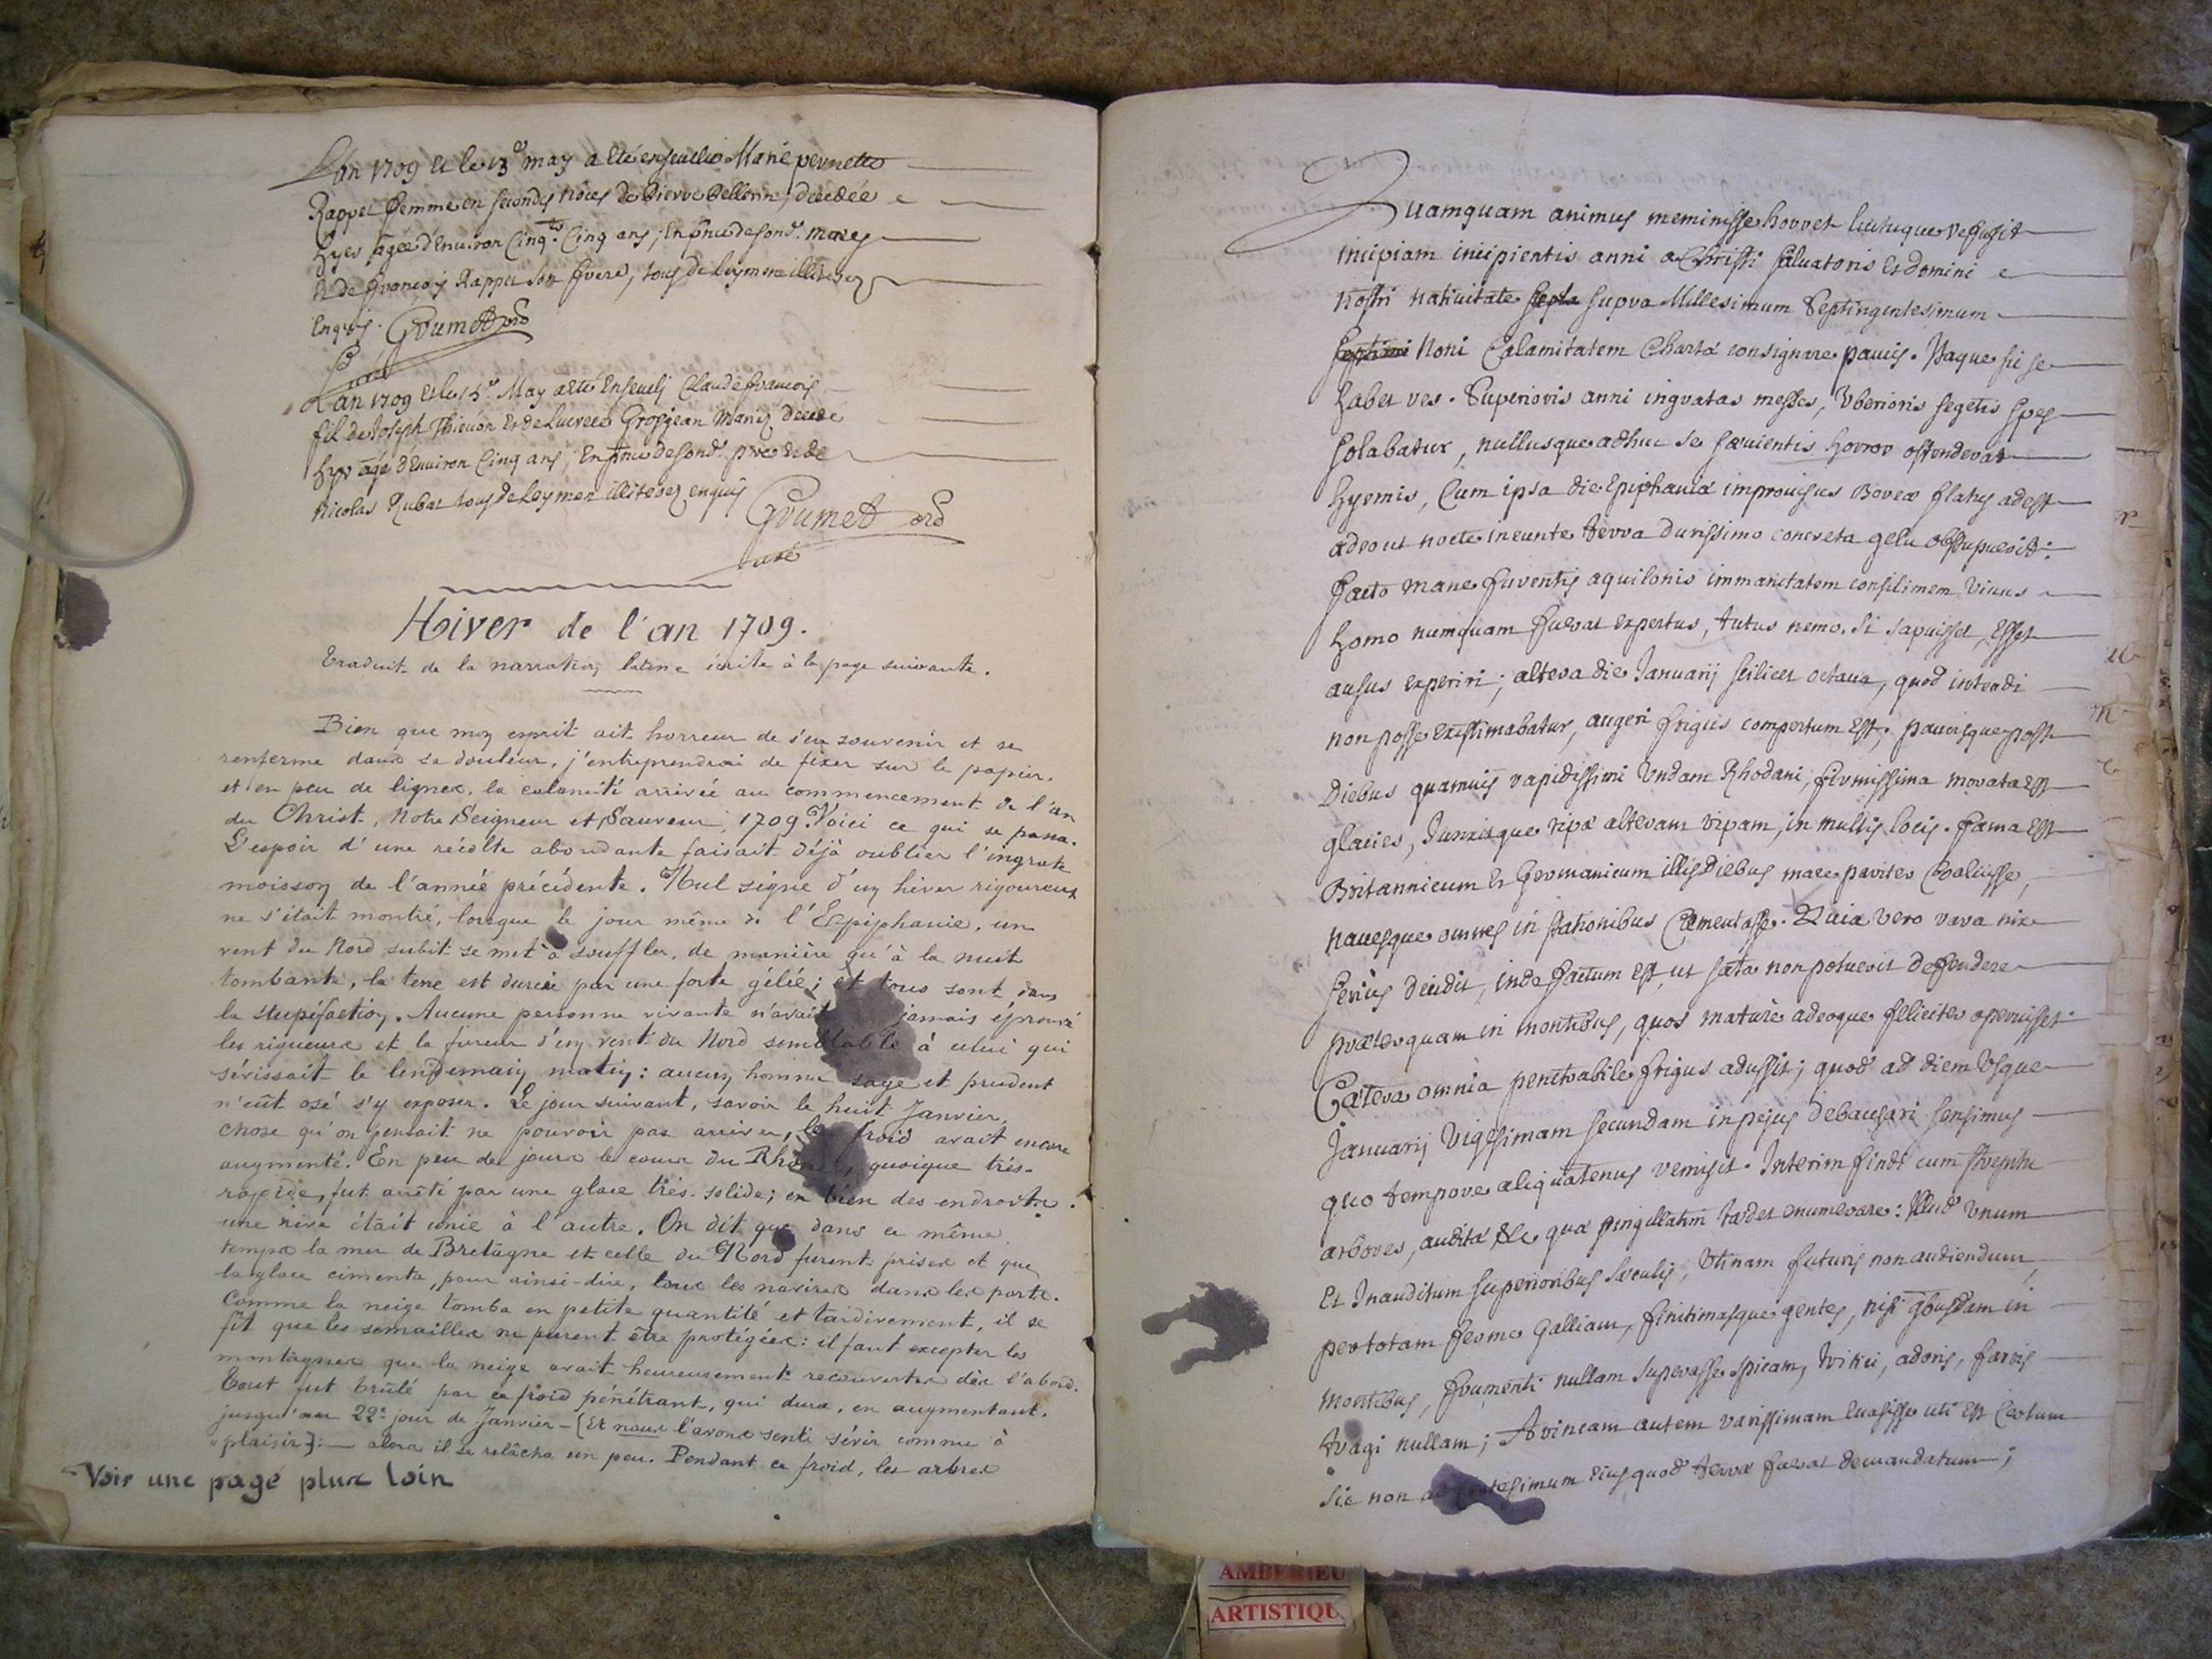 L'an 1709 et le 13e may a eté enseuelie Marie pernette
Rappet femme en secondes nôces de Pierre Pellerin, decedée
hyer agée d'Enuiron Cinqte. Cinq ans; En pnce de sond. mary
et de françois Rappet son frere, tous de Leyment illiterez
Enquis. Groumet ord
Curé
L'an 1709 et le 15e. May a eté Enseuely Claude françois
fils de Joseph Thieuon et de Lucrece Grosjean Mariez decedé
hyer agé d'Enuiron Cinq ans; En pnce de sond. pere et de
Nicolas Rubat tous de Leyment illiterez enquis
Groumet ord
curé
Hiver de l'an 1709.
Traduit de la narration latine écrite à la page suivante.
Bien que mon esprit ait horreur de s'en souvenir et se
renferme dans sa douleur, j'entreprendrai de fixer sur le papier,
et en peu de lignes, la calamité arrivée au commencement de l'an
du Christ, Notre Seigneur et Sauveur, 1709. Voici ce qui se passa.
L'espoir d'une récolte abondante faisait déjà oublier l'ingrate
moisson de l'année précédente. Nul signe d'un hiver rigoureux
ne s'était montré, lorsque le jour même de l'Epiphanie, un
vent du Nord subit se met à souffler, de manière qu'à la nuit
tombante, la terre est durcie par une forte gélée; et tous sont dans
la stupéfaction. Aucune personne vivante n'avait jamais éprouvé
les rigueurs et la fureur d'un vent du Nord semblable à celui qui
sévissait le lendemain matin: aucun homme sage et prudent
n'eût osé s'y exposer. Le jour suivant, savoir le huit Janvier,
chose qu'on pensait ne pouvoir pas arriver, le froid avait encore
augmenté. En peu de jours le cours du Rhône, quoique très-
rapide, fut arrêté par une glace très-solide; en bien des endroits
une rive était unie à l'autre. On dit que dans ce même
temps la mer de Bretagne et celle du Nord furent prises et que
la glace cimenta, pour ainsi-dire, tous les navires dans les ports.
Comme la neige tomba en petite quantité et tardivement, il se
fit que les semailles ne purent être protégées: il faut excepter les
montagnes que la neige avait heureusement recouvertes dès l'abord.
Tout fut brûlé par ce froid pénétrant, qui dura, en augmentant,
jusqu'au 22e jour de Janvier - (Et nous l'avons senti sévir comme à
plaisir): - alors il se relâcha un peu. Pendant ce froid, les arbres
Voir une page plus loin
Quamquam animus meminisse horret luctuque refugit
incipiam incipientis anni a Christi saluatoris et domini
nostri natiuitate supra Millesimum Septingentesimum
Noni Calamitatem Charta consignare paucis. Itaque sic se
habet res. Superioris anni ingratas messes, Vberioris segetis spes
solabatur, nullusque adhuc se sæuientis horror ostenderat
hyemis, Cum ipsa die Epiphaniæ improuisus Boreæ flatus adest
adeo ut nocte ineunte terra durissimo concreta gelu obstupuerit:
facto mane furentis aquilonis immanitatem consilimem viuus
homo numquam fuerat expertus, tutus nemo, si sapuisset, esset
ausus experiri; altera die Januarij scilicet octaua, quod intendi
non posse existimabatur, augeri frigus compertum est; paucisque post
Diebus quamuis rapidissimi Vndam Rhodani, firmissima morata est
glacies, Junxitque ripæ alteram ripam, in multis locis. fama est
Britannicum et Germanicum illis diebus mare pariter Coaliuisse,
nauesque omnes in stationibus Cæmentasse. Quia vero rara nix
serius decidit, inde factum est, ut sata non potuerit defendere
præterquam in montibus, quos maturè adeoque feliciter operuisset
Cætera omnia penetrabile frigus adussit; quod ad diem Vsque
Januarij Vigesimam secundam in pejus debacchari sensimus
quo tempore aliquatenus remisit. Interim findi cum strepitu
arbores, audita &c quæ singillatim tædet enumerare: Illud Vnum
et Inauditum superioribus sæculis, Vtinam futuris non audiendum
per totam ferme Galliam, finitimasque gentes, nisi qbusdam in
montibus, frumenti nullam superasse spicam, tritici, adoris, farris
tragi nullam; Auineam autem rarissimam Euasisse uti est Certum
sic non ad centesimum eius quod terræ fuerat demandatum;
AMBERIEU
ARTISTIQU